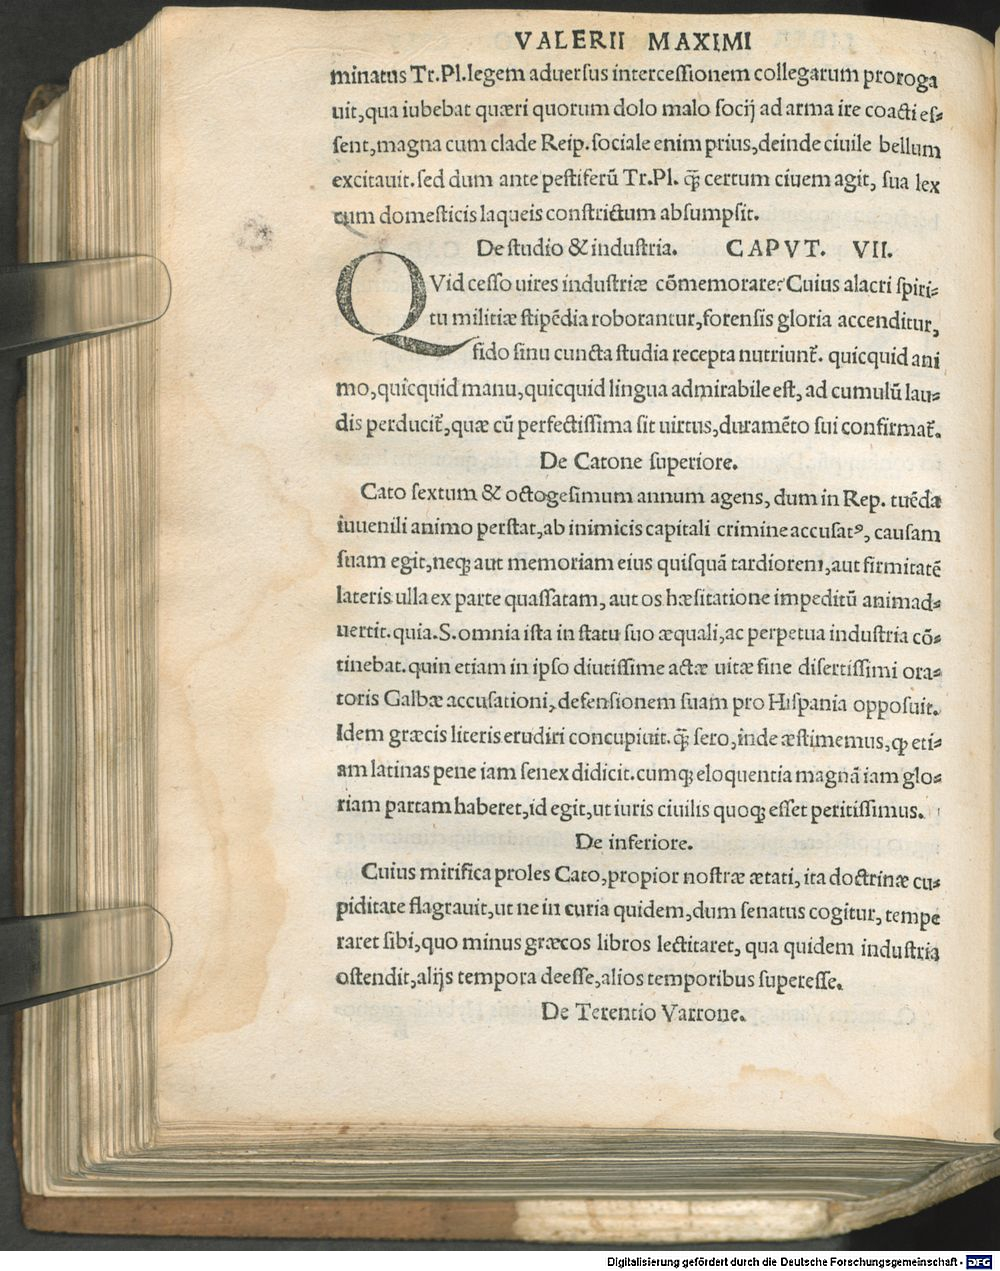 VALERII MAXIMI
minatus Tr.Pl.legem aduersus intercessionem collegarum proroga
uit,qua iubebat quæri quorum dolo malo socij ad arma ire coacti es⸗
sent,magna cum clade Reip.sociale enim prius,deinde ciuile bellum
excitauit.sed dum ante pestiferũ Tr.Pl. q̃ꝫ certum ciuem agit, sua lex
eum domesticis laqueis constrictum absumpsit.
De studio & industria. CAPVT. VII.
QVid cesso uires industriæ cõmemorare?Cuius alacri spiri⸗
tu militiæ stipẽdia roborantur,forensis gloria accenditur,
fido sinu cuncta studia recepta nutriunt̃. quicquid ani
mo,quicquid manu,quicquid lingua admirabile est, ad cumulũ lau⸗
dis perducit̃,quæ cũ perfectissima sit uirtus,duramẽto sui confirmat̃.
De Catone superiore.
Cato sextum & octogesimum annum agens, dum in Rep. tuẽda
iuuenili animo perstat,ab inimicis capitali crimine accusatꝰ, causam
suam egit,neqꝫ aut memoriam eius quisquã tardiorem,aut firmitatẽ
lateris ulla ex parte quassatam, aut os hæsitatione impeditũ animad⸗
uertit.quia.S.omnia ista in statu suo æquali,ac perpetua industria cõ⸗
tinebat.quin etiam in ipso diutissime actæ uitæ fine disertissimi ora⸗
toris Galbæ accusationi,defensionem suam pro Hispania opposuit.
Idem græcis literis erudiri concupiuit.q̃ꝫ sero,inde æstimemus,ꝙ eti⸗
am latinas pene iam senex didicit.cumqꝫ eloquentia magnã iam glo⸗
riam partam haberet,id egit,ut iuris ciuilis quoqꝫ esset peritissimus.
De inferiore.
Cuius mirifica proles Cato,propior nostræ ætati, ita doctrinæ cu⸗
piditate flagrauit,ut ne in curia quidem,dum senatus cogitur, tempe
raret sibi,quo minus græcos libros lectitaret, qua quidem industria
ostendit,alijs tempora deesse,alios temporibus superesse.
De Terentio Varrone.
Digitalisierung gefördert durch die Deutsche Forschungsgemeinschaft - DFG